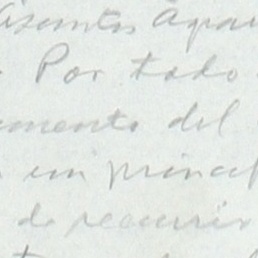 asuntos apar
Por todo
amento del
un princip
de recurrir